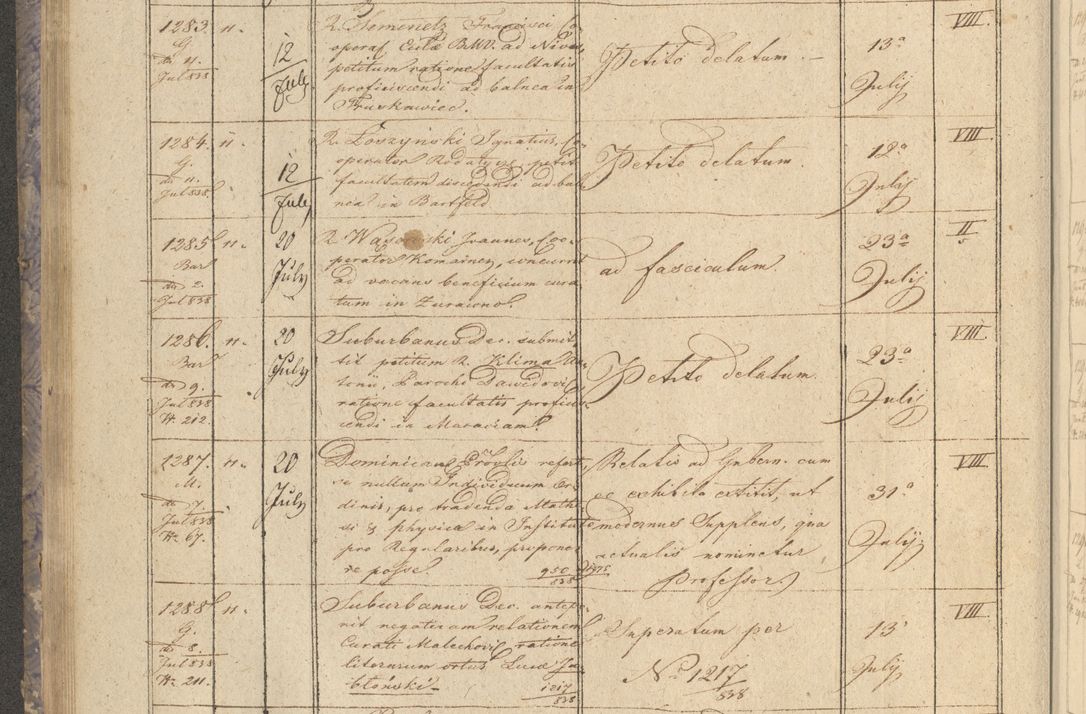 1283. n.
G.
dto 4.
Jul 838
12
July
R. Kemenetz Francisci Co-
operat Eccla BMV. ad Nives,
petitum ratione facultatis
proficiscendi ad balnea in
Truskawiec.
Petito delatum. —
13a
Julij
VIII.
1284. n.
G.
dto 11.
Jul 838.
12
July
R. Łoszyński Ignatius, Co-
operator Rodatycz, petit
facultatem discedendi ad bal-
nea in Bartfeld
Petito delatum.
12a
Julij
VIII.
1285 n.
Bar
dto 2.
Jul 838
20
July
R. Joannes, Coo-
perator Komarnen, concurrit
ad vacans beneficium cura
tum in Zurawno.
ad fasciculum.
23a
Julij
II
1286. n.
Bar
dto 9.
Jul 838
N. 212.
20
July
Suburbanus Dec. submit-
tit petitum R. Klima An-
tonii, Parochi Dawidoviens
ratione facultatis profici-
scendi in Moraviam.
Petito delatum.
23a
Julij
VIII.
1287. n.
M.
dto 7.
Jul 838
N. 67.
20
July
Dominicanus Provlis refert,
se nullum Individuum Or-
dinis, pro tradenda Mathe-
si & physica in Instituto
pro Regularibus, propone-
re posse. 950/838
Relatio ad Gubern. cum
eo exhibita extitit, ut
modernus Supplens, qua
actualis nominetur
Professor
31a
Julij
VIII.
1288 n.
G.
dto 8.
Jul 838
N. 211.
Suburbanus Dec. antepo-
nit negativam relationem
Curati Malechovs ratione
literarum ortus Lucæ Ja-
błoński. 1217/838
Superatum per
No 1217
838
13
Julij
VIII.